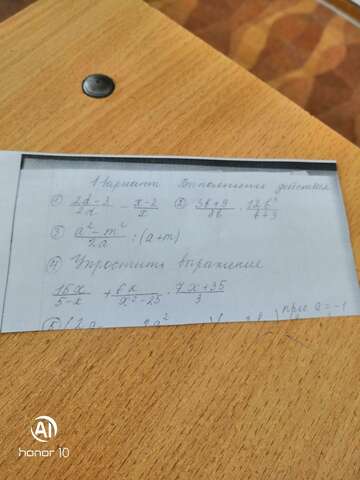 1 вариант Выполните действия
① 2x-2/2x - x-2/x ② 3b+9/8b · 12b³/b+3
③ a²-m²/2a : (a+m)
④ Упростить выражение
15x/5-x + 6x/x²-25 · 7x+35/3
при a=-1
AI
honor 10